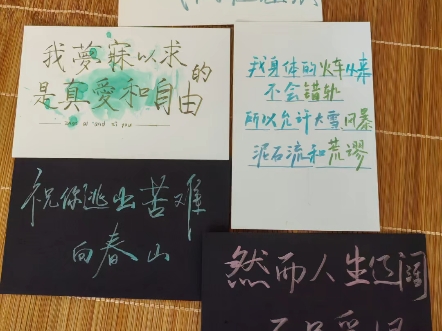 我夢寐以求的
是真愛和自由
我身体的火车从来
不会错轨
所以允许大雪风暴
泥石流和荒谬
祝你逃出苦难
向春山
然而人生辽阔